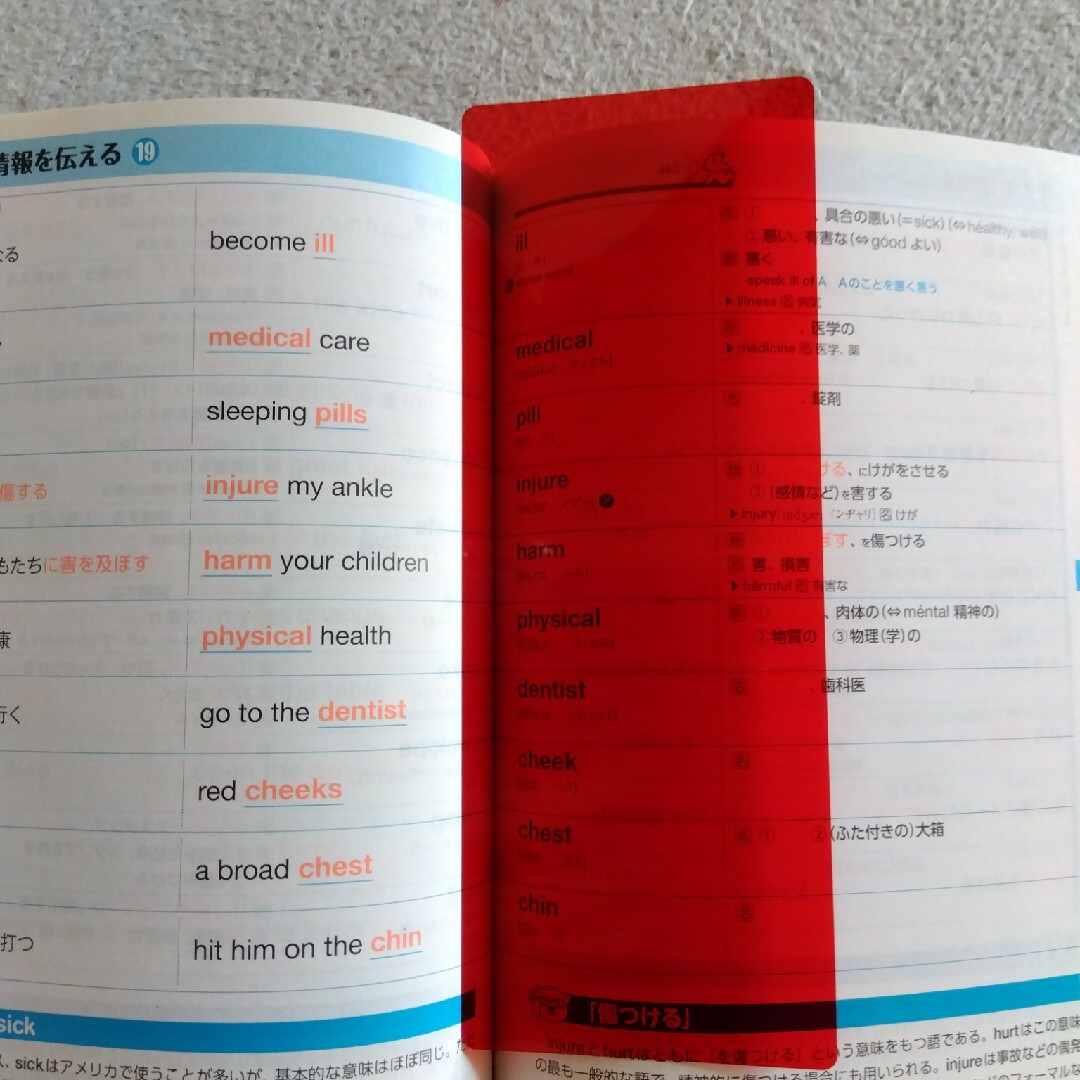 情報を伝える 19
become ill
medical care
sleeping pills
傷する
injure my ankle
もたちに害を及ぼす
harm your children
康
physical health
行く
go to the dentist
red cheeks
a broad chest
打つ
hit him on the chin
sick
、sickはアメリカで使うことが多いが、基本的な意味はほぼ同じ。た
ill
、具合の悪い(=síck)(⇔héalthy, wéll)
②悪い、有害な(⇔góod よい)
悪く
speak ill of A Aのことを悪く言う
▶illness 名 病気
medical
、医学の
▶médicine 名 医学、薬
pill
名 、錠剤
injure
他 ① ける、にけがをさせる
②(感情など)を害する
▶ínjury 名 けが
harm
他 ぼす、を傷つける
名 害、損害
▶hármful 形 有害な
physical
形 ① 、肉体の(⇔méntal 精神の)
②物質の ③物理(学)の
dentist
名 、歯科医
cheek
名
chest
名 ① ②(ふた付きの)大箱
chin
名
「傷つける」
injureとhurtはともに「を傷つける」という意味をもつ語である。hurtはこの意味
の最も一般的な語で、精神的に傷つける場合にも用いられる。injureは事故などの偶発